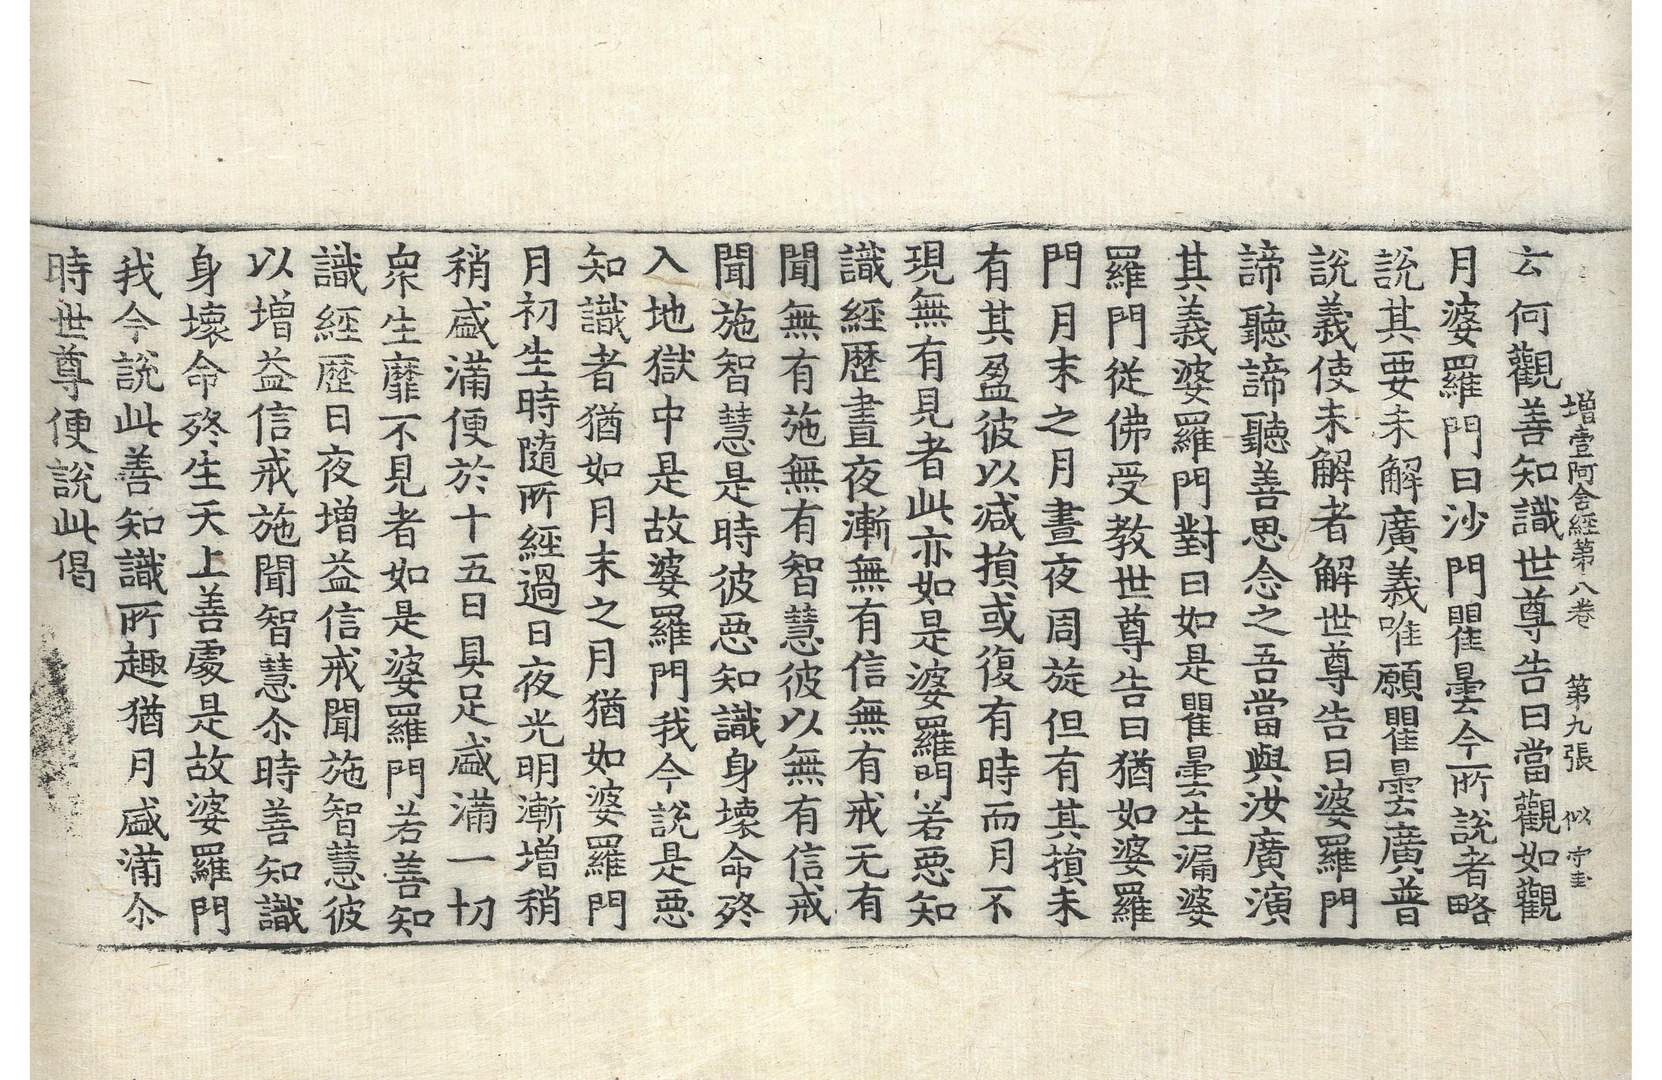 增壹阿含經第八卷　第九張　似　守圭
云何觀善知識世尊告曰當觀如觀
月婆羅門曰沙門瞿曇今所說者略
說其要未解廣義唯願瞿曇廣普
說義使未解者解世尊告曰婆羅門
諦聽諦聽善思念之吾當與汝廣演
其義婆羅門對曰如是瞿曇生漏婆
羅門從佛受教世尊告曰猶如婆羅
門月末之月晝夜周旋但有其損未
有其盈彼以减損或復有時而月不
現無有見者此亦如是婆羅門若惡知
識經歷晝夜漸無有信無有戒无有
聞無有施無有智慧彼以無有信戒
聞施智慧是時彼惡知識身壞命終
入地獄中是故婆羅門我今說是惡
知識者猶如月末之月猶如婆羅門
月初生時隨所經過日夜光明漸增稍
稍盛滿便於十五日具足盛滿一切
衆生靡不見者如是婆羅門若善知
識經歷日夜增益信戒聞施智慧彼
以增益信戒施聞智慧尒時善知識
身壞命終生天上善處是故婆羅門
我今說此善知識所趣猶月盛滿尒
時世尊便說此偈